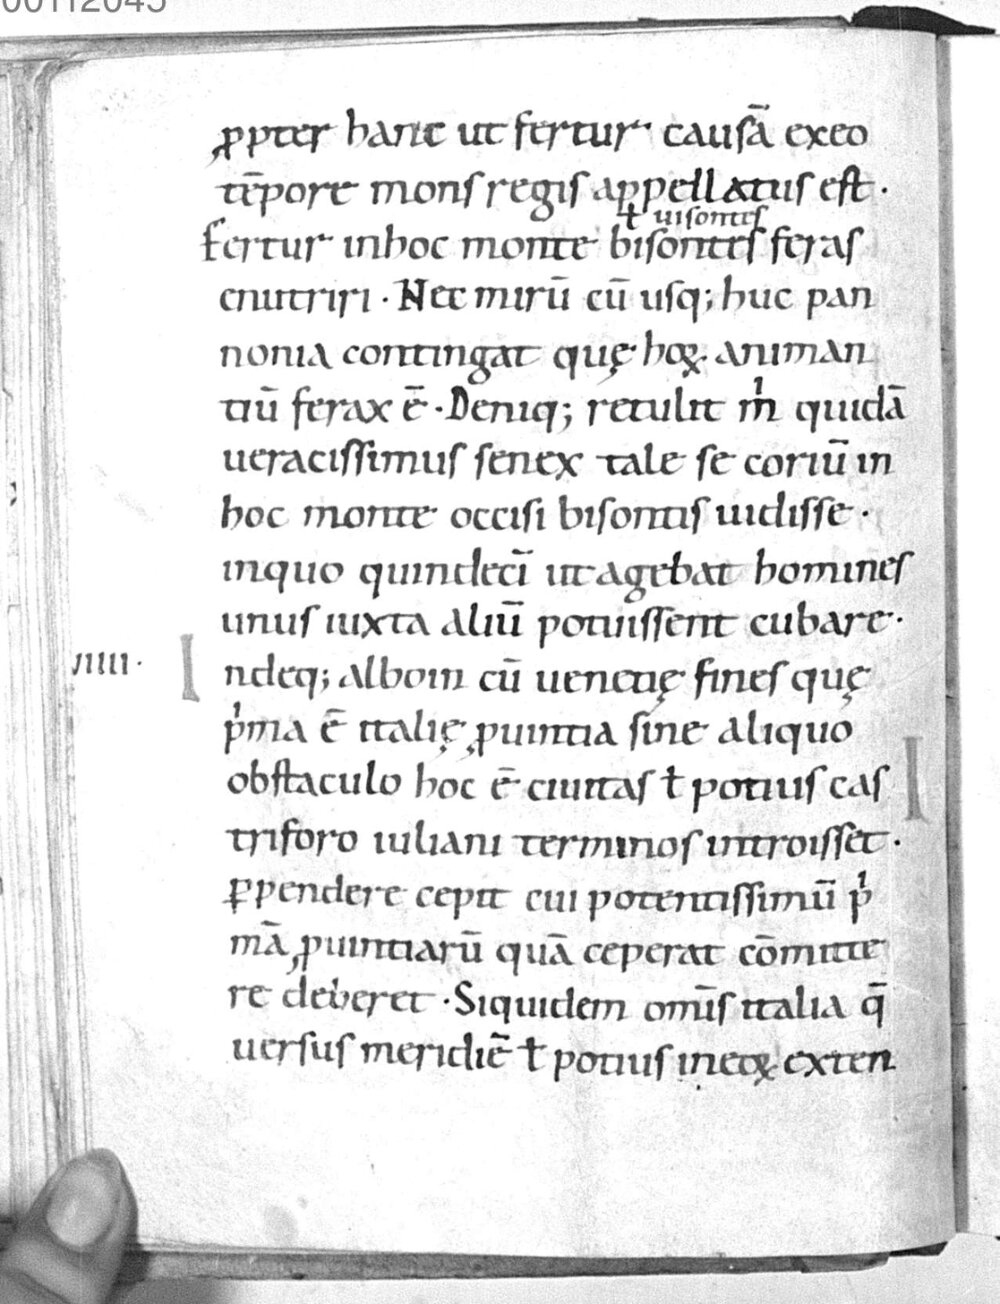 00112045
ꝓpter hanc ut fertur causā exeo
tēpore mons regis appellatus est ·
ƚ uisontes
fertur inhoc monte bisontes feras
enutriri · Nec mirū cū usq; huc pan
nonia contingat quę hoꝝ animan
tiū ferax ē · Deniq; retulit m̍ quidā
ueracissimus senex tale se coriū in
hoc monte occisi bisontis uidisse ·
inquo quindecī ut agebat homines
unus iuxta aliū potuissent cubare ·
IIIII · Indeq; alboin cū uenetię fines quę
p̍ma ē italię ꝓuintia sine aliquo
obstaculo hoc ē ciuitas ƚ potius cas
tri foro iuliani terminos introisset ·
ꝑpendere cepit cui potentissimū p̍
mā ꝓuintiarū quā ceperat cōmitte
re deberet · Siquidem omīs italia q̄
uersus meridiē ƚ potius ineoꝝ exten